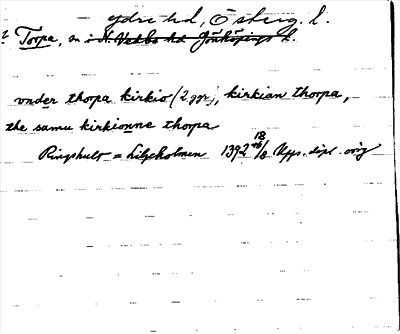 Ydre hd, Österg. l.
? Torpa, sn i N. Vedbo hd Jönköpings l.
vnder thorpa kirkio (2 ggr), kirkian thorpa,
the samu kirkionne thorpa
18
Ringshult = Liljeholmen 1392 /8 Upps. dipl. orig